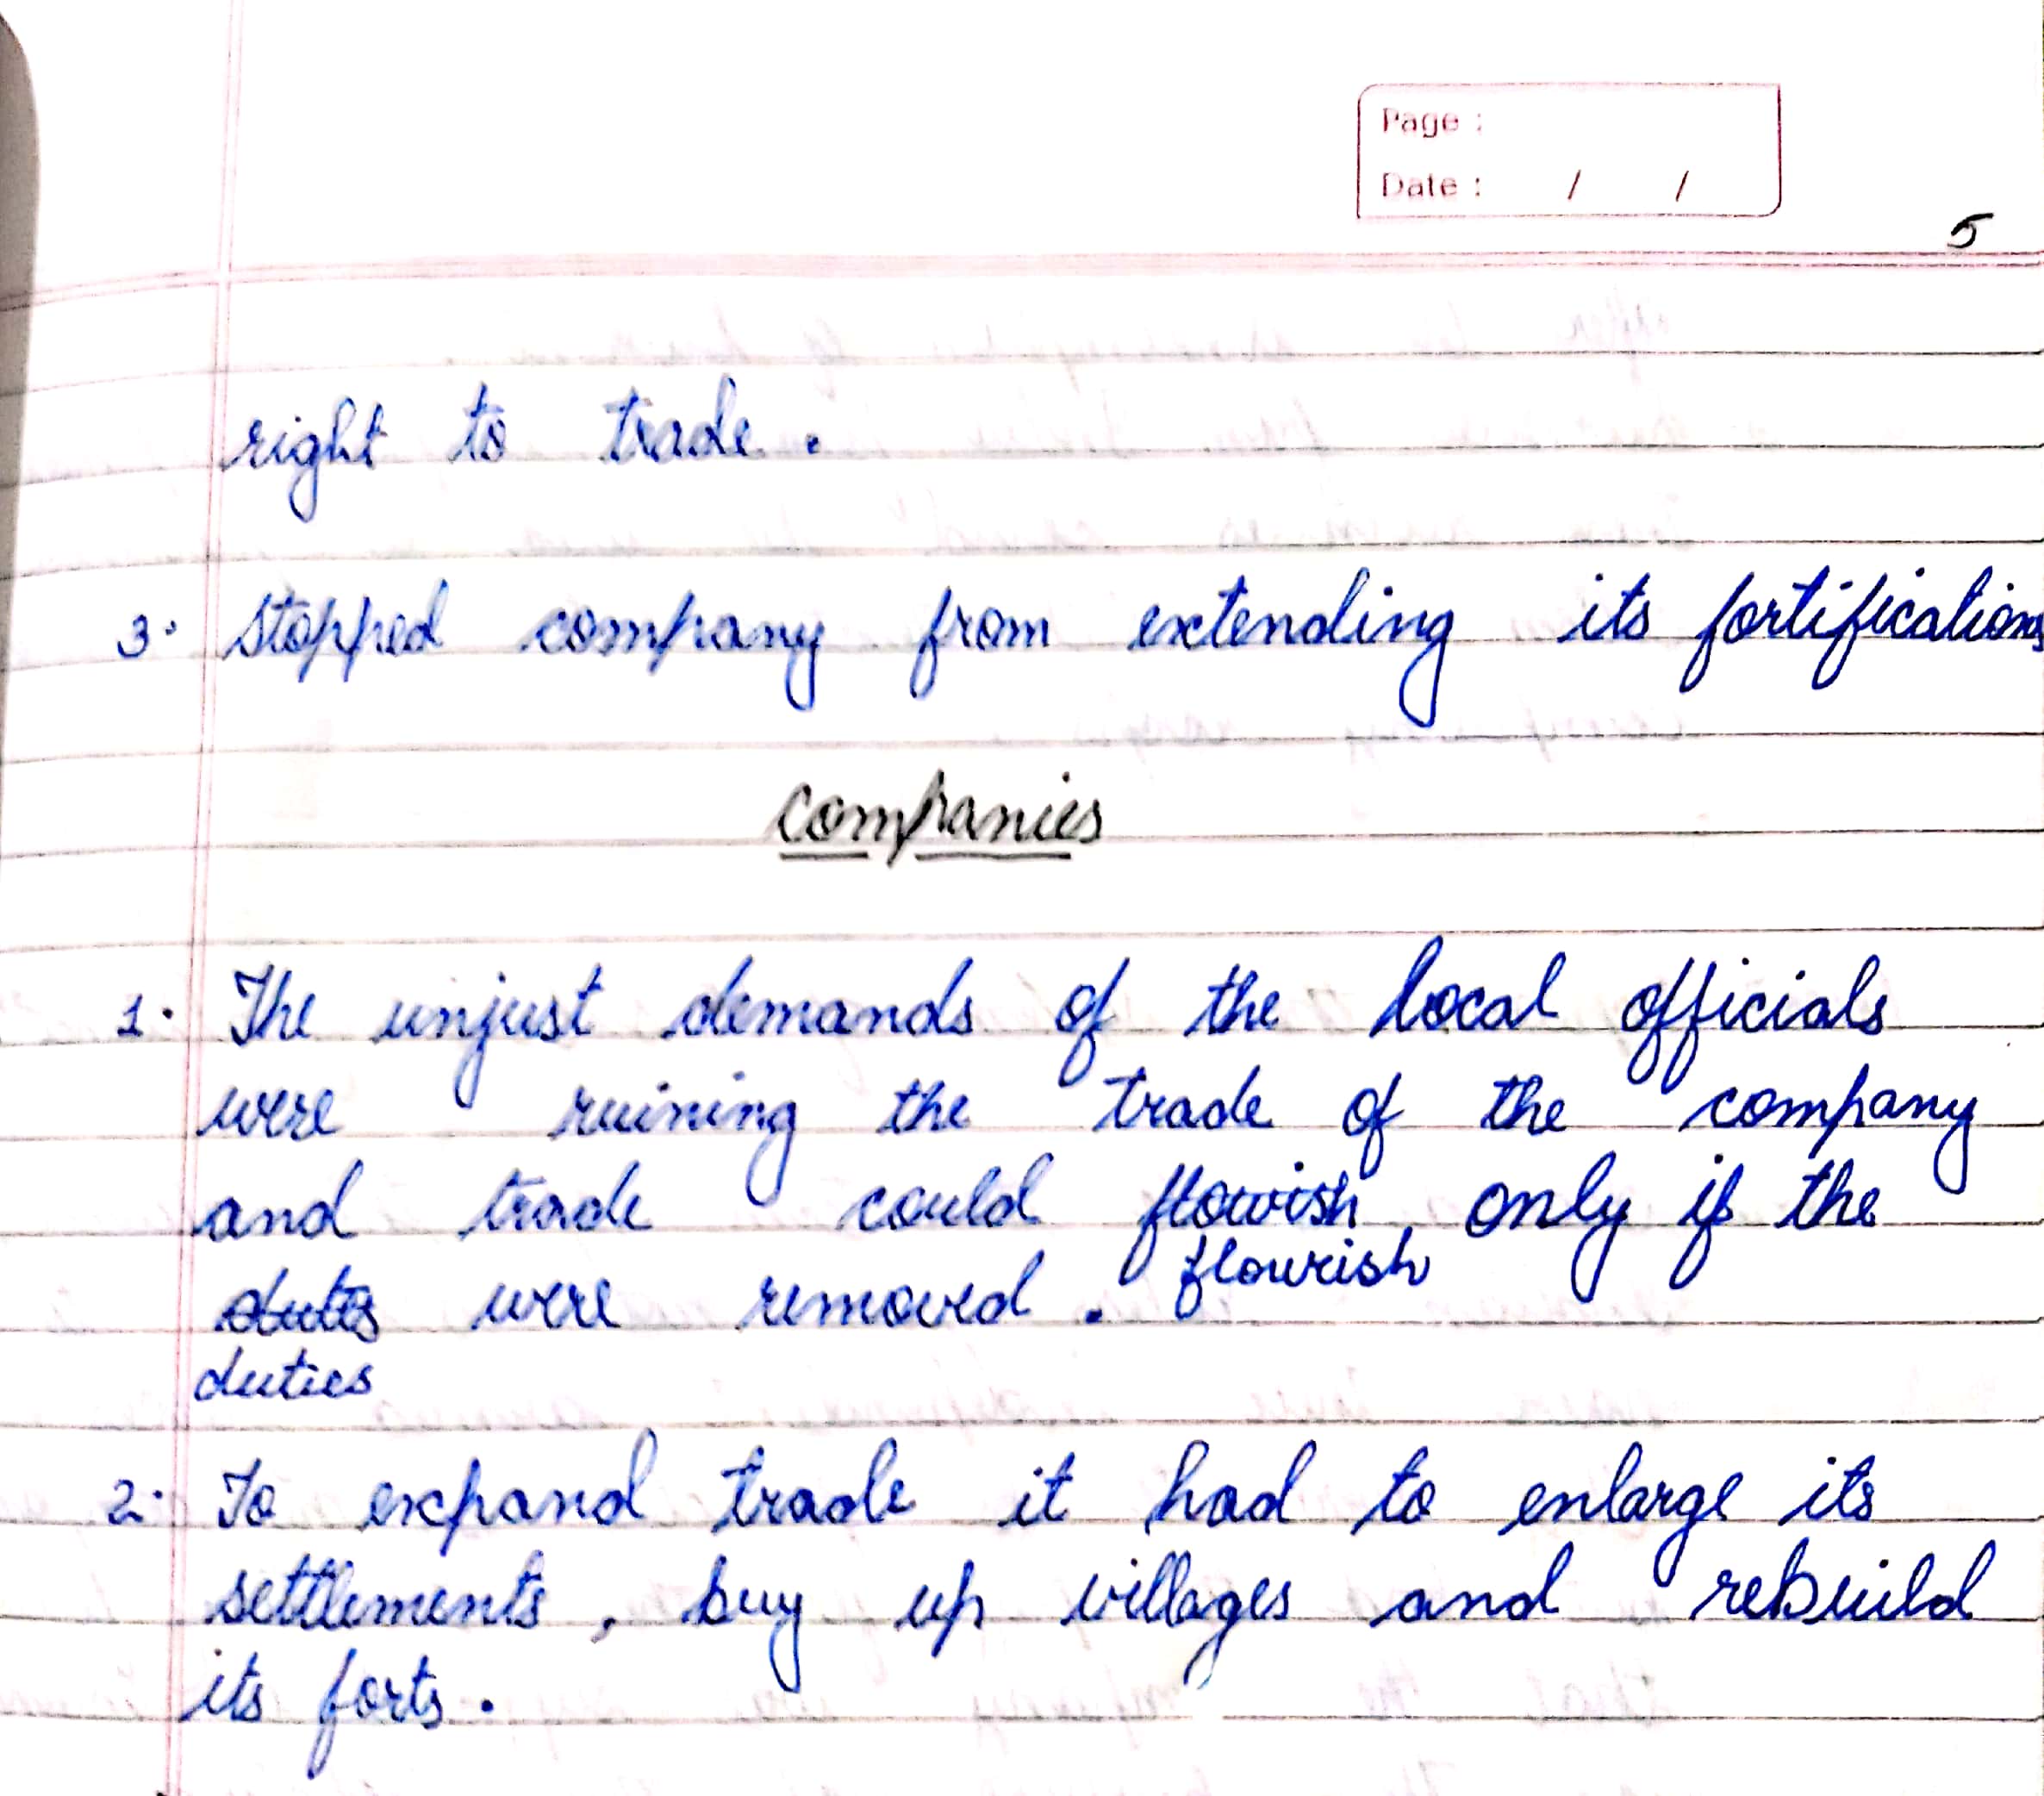 Page :
Date : / /
5
right to trade.
3. stopped company from extending its fortifications
Companies
1. The unjust demands of the local officials
were ruining the trade of the company
and trade could flowish only if the
flourish
dutes were removed.
duties
2. To expand trade it had to enlarge its
settlements, buy up villages and rebuild
its forts.